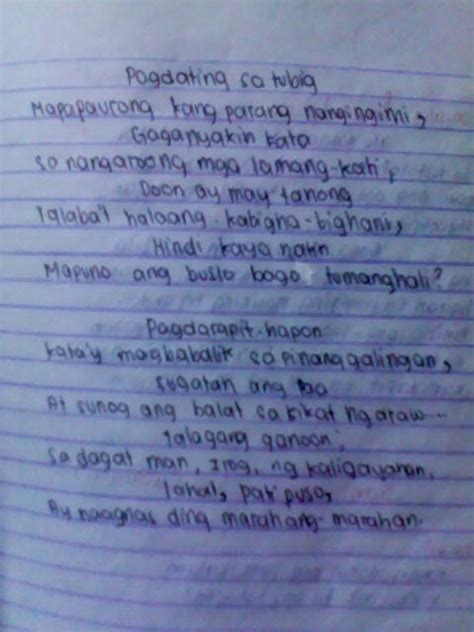 Pagdating sa tubig
Mapapaurong kang parang nangingimi,
Gaganyakin kata
sa nangaroong mga lamang-kati,
Doon ay may tanong
halaang kabigha-bighani,
Hindi kaya natin
Mapuno ang buslo bago tumanghali?
Pagdarapit-hapon
kata'y magbabalik sa pinanggalingan,
sugatan ang paa
At sunog ang balat sa sikat ng araw...
Talagang ganoon;
sa dagat man, irog, ng kaligayahan,
lahat, pati puso,
Ay naagnas ding marahang-marahan.